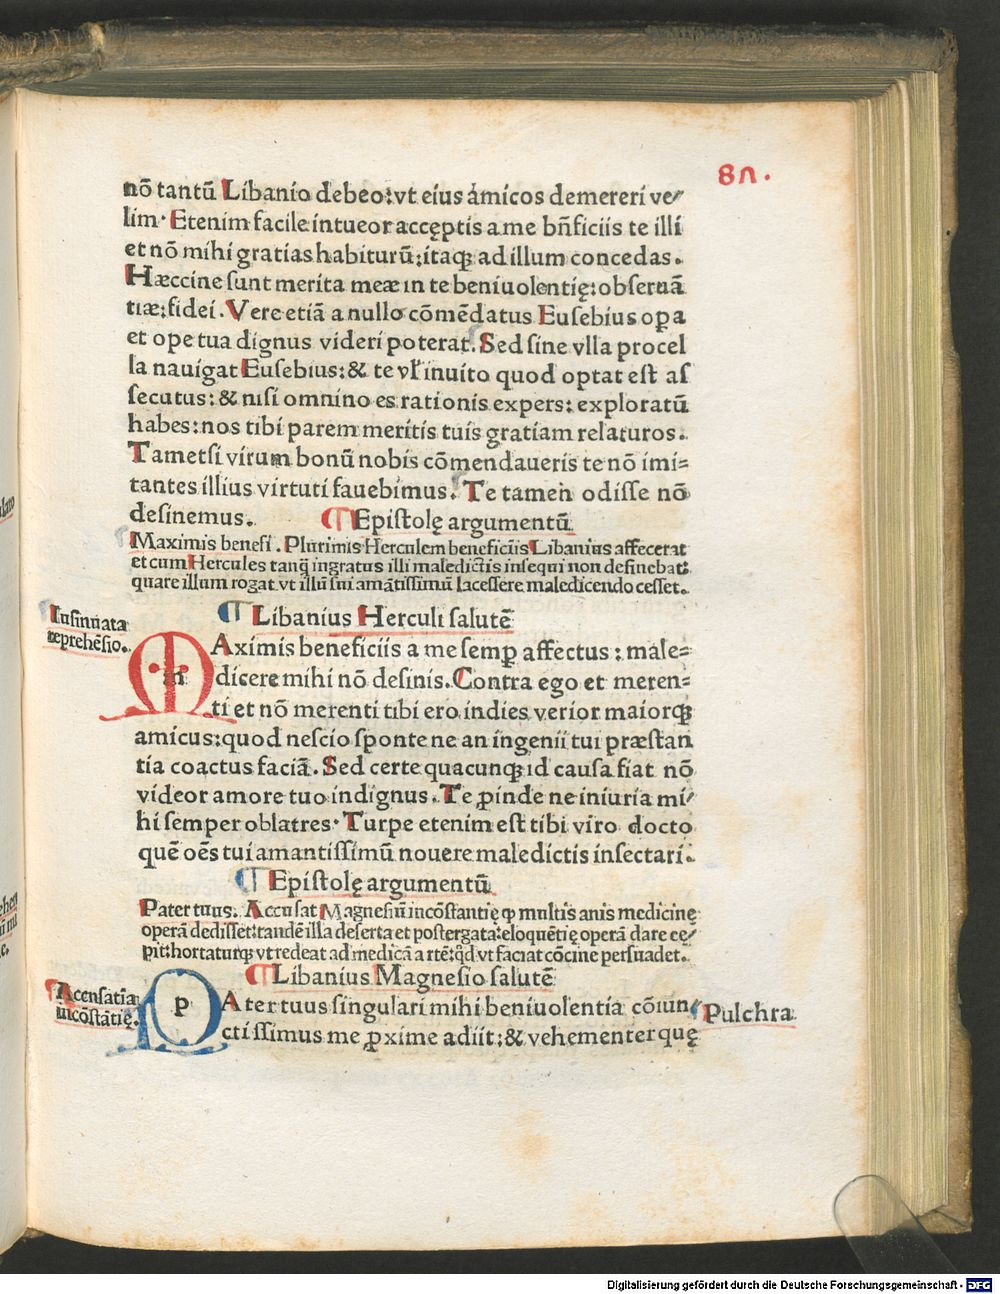 8ʌ.
nō tantū Libanio debeo: vt eius amicos demereri ve⸗
lim. Etenim facile intueor acceptis a me bñficiis te illi
et nō mihi gratias habiturū: itaqꝫ ad illum concedas.
Hæccine sunt merita meæ in te beniuolentię: obseruā
tiæ: fidei. Vere etiā a nullo cōmēdatus Eusebius opa
et ope tua dignus videri poterat. Sed sine vlla procel
la nauigat Eusebius: & te vł inuito quod optat est as
secutus: & nisi omnino es rationis expers: exploratū
habes: nos tibi parem meritis tuis gratiam relaturos.
Tametsi virum bonū nobis cōmendaueris te nō imi⸗
tantes illius virtuti fauebimus. Te tamen odisse nō
desinemus. ¶ Epistolę argumentū
Maximis benefi. Plurimis Herculem beneficiis Libanius affecerat
et cum Hercules tanꝗ̃ ingratus illi maledictis insequi non desinebat:
quare illum rogat vt illū sui amātissimū lacessere maledicendo cesset.
¶ Libanius Herculi salutē
Insinuata
reprehēsio.
m Aximis beneficiis a me semꝑ affectus: male⸗
dicere mihi nō desinis. Contra ego et meren⸗
ti et nō merenti tibi ero indies verior maiorqꝫ
amicus: quod nescio sponte ne an ingenii tui præstan
tia coactus faciā. Sed certe quacunqꝫ id causa fiat nō
videor amore tuo indignus. Te ꝓinde ne iniuria mi⸗
hi semper oblatres. Turpe etenim est tibi viro docto
quē oēs tui amantissimū nouere maledictis insectari.
¶ Epistolę argumentū
Pater tuus. Accusat Magnesiū incōstantię ꝙ multis anis medicinę
operā dedisset: tandē illa deserta et postergata: eloquētię operā dare ce⸗
pit: hortaturqꝫ vt redeat ad medicā artē: qd vt faciat cōcine persuadet.
¶ Libanius Magnesio salutē
Accusatiā
incōstātię.
p Ater tuus singulari mihi beniuolentia cōiun
ctissimus me ꝓxime adiit: & vehementer quę
Pulchra
Digitalisierung gefördert durch die Deutsche Forschungsgemeinschaft - DFG